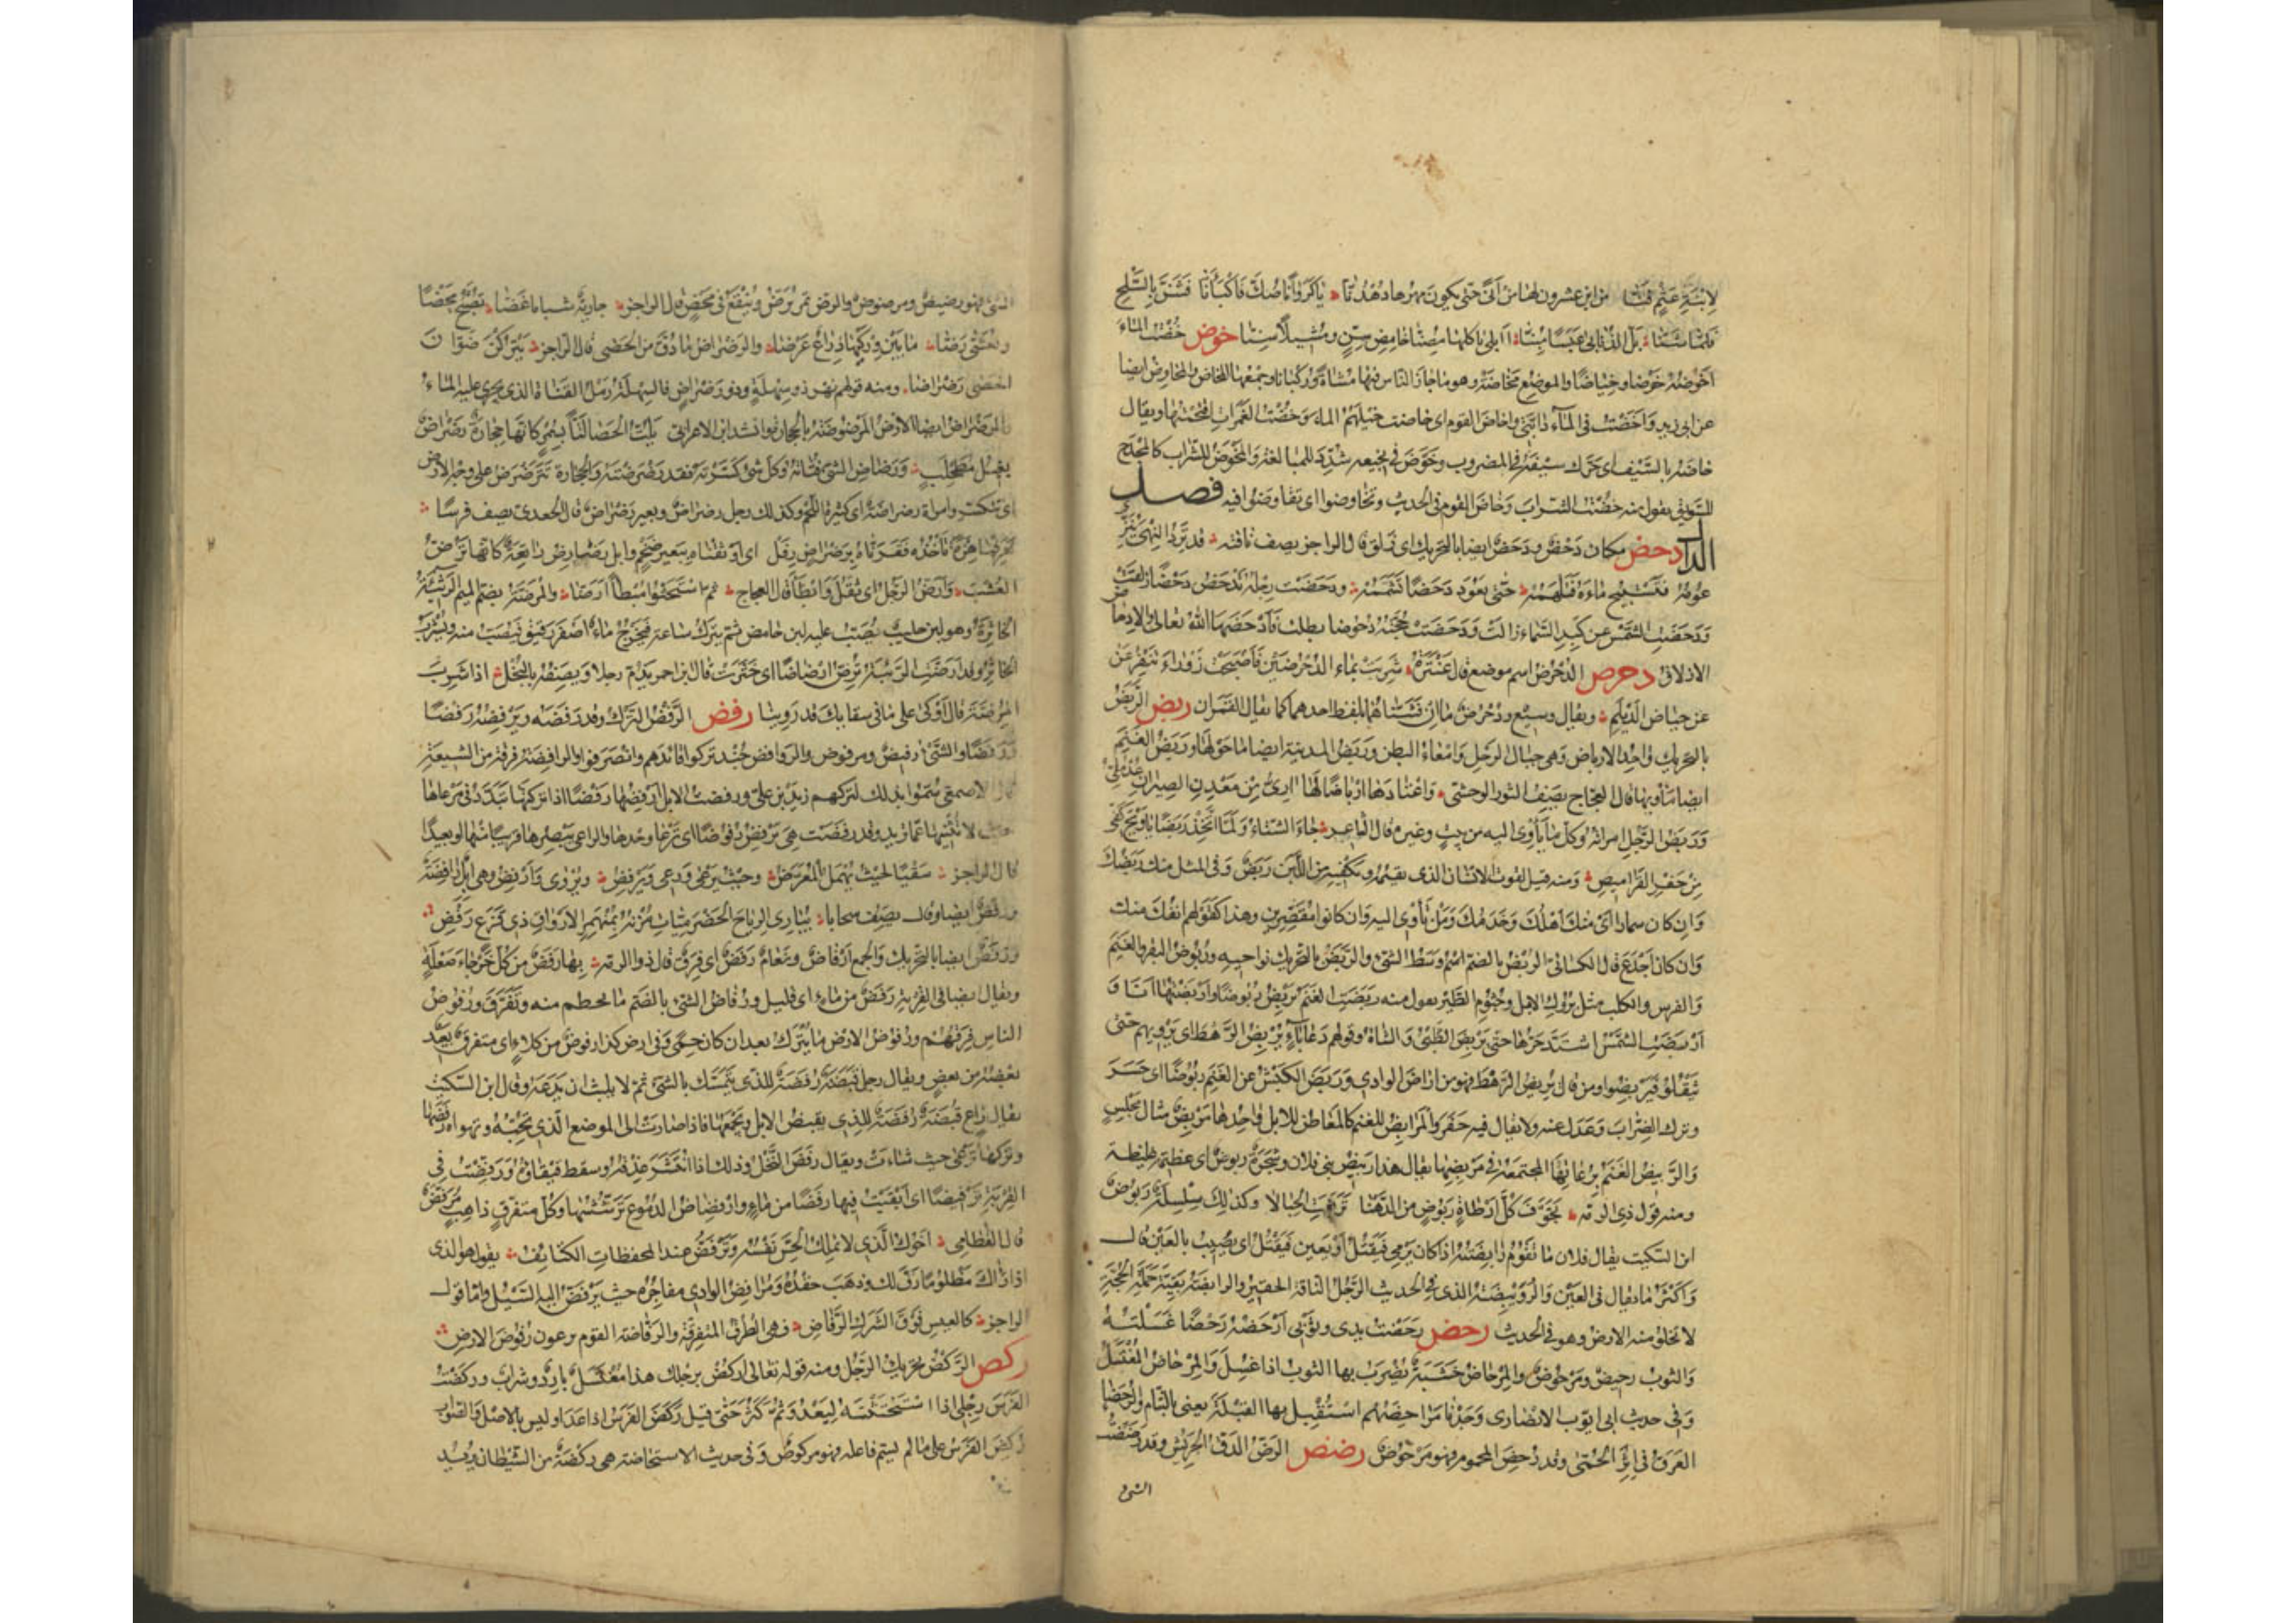 لابنة عثم فتًا من ابن عشرون لها من انّى حتى يكون مهرها دهدنّا يا كروانا صُكّ فاكبأنّا فشنّ بالسلح
فلما شنّا بل الذنابى عبسا مبنّا أ ابلى يأكلها مصنّا خافض سن ومشيلا سنّا خوض خضت الماء
اخوضه خوضا وخياضا والموضع مخاضة وهو ما جاز الناس فيها مشاة وركبانا وجمعها المخاض والمخاوض ايضا
عن ابى زيد وأخضت فى الماء دابتى واخاض القوم اى خاضت خيلهم الماء وخضت الغمرات اقتحمتها ويقال
خاضه بالسيف اى حرك سيفه فى المضروب وخوّض فى نجيعه شدد للمبالغة والمخوض للشراب كالمجدح
للسويق يقول منه خضت الشراب وخاض القوم فى الحديث وتخاوضوا اى تفاوضوا فيه فصل
الدال دحض مكان دحض ودحض ايضا بالتحريك اى زلق قال الراجز يصف ناقته قد ترد النهى تنزى
عومه فتستبيح ماءه فتلهمه حتى يعود دحضا تشممه ودحضت رجله تدحض دحضا زلقت
ودحضت الشمس عن كبد السماء زالت ودحضت حجته دحوضا بطلت فأدحضها الله تعالى والادحاض
الازلاق دحرض الدحرض اسم موضع قال عنترة شربت بماء الدحرضين فأصبحت زوراء تنفر عن
عن حياض الديلم ويقال وسيع ودحرض ماآن ثنّاهما بلفظ احدهما كما يقال القمران ربض الربض
بالتحريك واحد الارباض وهى حبال الرحل وامعاء البطن وربض المدينة ايضا ما حولها وربض الغنم
ايضا مأويها قال العجاج يصف الثور الوحشى واعتاد ارباضا لها آرىّ من معدن الصيران عدملىّ
وربض الرجل امراته وكل ما يأوى اليه من بيت وغيره قال الشاعر جاء الشتاء ولما اتخذ ربضا يا ويح كفى
من حفر القراميص ومنه قيل لقوت الانسان الذى يقيمه ويكفيه من اللبن ربض وفى المثل منك ربضك
وان كان سمارا اى منك اهلك وخدمك ومن تأوى اليه وان كانوا مقصرين وهذا كقولهم انفك منك
وان كان اجدع قال الكسائى الربض بالضم اسم وسط الشئ والربض بالتحريك نواحيه وربوض البقر والغنم
والفرس والكلب مثل بروك الابل وجثوم الطير تقول منه ربضت الغنم تربض ربوضا واربضتها انا و
اربضت الشمس اشتد حرها حتى يربض الظبى والشاة وقولهم دعا بإناء يربض الرهط اى يرويهم حتى
يثقلوا فيربضوا ومن قال يريض الرهط فهو من اراض الوادى وربض الكبش عن الغنم ربوضا اى حسر
وترك الضراب وعدل عنه ولا يقال فيه جفر والمرابض للغنم كالمعاطن للابل واحدها مربض مثال مجلس
والربيض الغنم برعاتها المجتمعة فى مربضها يقال هذا ربيض بنى فلان وشجرة ربوض اى عظيمة غليظة
ومنه قول ذى الرمة تجوف كل ارطاة ربوض من الدهنا تفرعت الحبالا وكذلك سلسلة ربوض
ابن السكيت يقال فلان ما تقوم رابضته اذا كان يرمى فيقتل او يعين فيقتل اى يصيب بالعين قال
واكثر ما يقال فى العين والرويبضة الذى فى الحديث الرجل التافه الحقير والرابضة بقية حملة الحجة
لا تخلو منه الارض وهو فى الحديث رحض رحضت يدى وثوبى ارحضه رحضا غسلته
والثوب رحيض ومرحوض والمرحاض خشبة يضرب بها الثوب اذا غسل والمرحاض المغتسل
وفى حديث ابى ايوب الانصارى وجدنا مراحيضهم استقبل بها القبلة يعنى بالشام والرحضاء
العرق فى اثر الحمى وقد رحض المحموم فهو مرحوض رضض الرض الدق الجريش وقد رضضت
الشئ
الشئ فهو رضيض ومرضوض والرض تمر يرض وينقع فى محض قال الراجز جارية شبت شبابا غضا تصبح محضا
وتعشى رضا ما بين وركيها ذراع عرضا والرضراض ما دق من الحصى قال الراجز يتركن صوان
الحصى رضراضا ومنه قولهم نهر ذو سهلة وذو رضراض فالسهلة رمل القناة الذى يجرى عليه الماء
والرضراض ايضا الارض المرضوضة بالحجارة وانشد ابن الاعرابى يلت الحصا لتا بسمر كانها حجارة رضراض
بغيل مطحلب ورضاض الشئ فتاته وكل شئ كسرته فقد رضرضته والحجارة تترضرض على وجه الارض
اى تتكسر وامراة رضراضة اى كثيرة اللحم وكذلك رجل رضراض وبعير رضراض قال الجعدى يصف فرسا
فعرفنا هزة تأخذه فقرناه برضراض رفل اى اوثقناه ببعير ضخم وابل رضارض راتعة كانها ترض
العشب وارض الرجل اى ثقل وابطأ قال العجاج ثم استحثوا مبطأ ارضا والمرضة بضم الميم الرثيئة
الخاثرة وهو لبن حليب يصب عليه لبن حامض ثم يترك ساعة فيخرج ماء اصفر رقيق فيصب منه ويشرب
الخاثر وقد ارضت الرثيئة ترض ارضاضا اى خثرت قال ابن احمر يذم رجلا ويصفه بالبخل اذا شرب
المرضة قال اوكى على ما فى سقائك قد روينا رفض الرفض الترك وقد رفضه يرفضه ويرفضه رفضا
ورفضا والشئ رفيض ومرفوض والروافض جند تركوا قائدهم وانصرفوا والرافضة فرقة من الشيعة
قال الاصمعى سموا بذلك لتركهم زيد بن على ورفضت الابل ارفضها رفضا اذا تركتها تبدد فى مرعاها
حيث لا تثنيها عما تريد وقد رفضت هى ترفض رفوضا اى ترعا وحدها والراعى يبصرها قريبا منها او بعيدا
قال الراجز سقيا لحيث يهمل المعرض وحيث يرعى ورعى ويرفض ويروى وارفض وهى ابل رافضة
ورفض ايضا وقال يصف سحابا يبارى الرياح الحضرميات مزنه بمنهمر الارواق ذى قزع رفض
ورفض ايضا بالتحريك والجمع ارفاض ونعام رفض اى فرق قال ذو الرمة بها رفض من كل خرجاء صعلة
ويقال ايضا فى القربة رفض من ماء اى قليل ورفاض الشئ بالضم ما تحطم منه وتفرق ورفوض
الناس فرقهم ورفوض الارض ما يترك بعد ان كان حمى وفى ارض كذا رفوض من كلاء اى متفرق بعيد
بعضه من بعض ويقال رجل قبضة رفضة للذى يتمسك بالشئ ثم لا يلبث ان يدعه وقال ابن السكيت
يقال راع قبضة رفضة للذى يقبض الابل ويجمعها فاذا صارت الى الموضع الذى تحبه وتهواه رفضها
وتركها ترعى حيث شاءت ويقال رفض النخل وذلك اذا انتشر عذقه وسقط قيقاؤه ورفضت فى
القربة ترفيضا اى ابقيت فيها رفضا من ماء وارفضاض الدموع ترششها وكل متفرق ذاهب مرفض
قال القطامى اخوك الذى لا تملك الحس نفسه وترفض عند المحفظات الكتائف يقول هو الذى
اذا رآك مظلوما رق لك وذهب حقده ومرافض الوادى مفاجره حيث يرفض اليه السيل واما قول
الراجز كالعيس فوق الشرك الرفاض فهى الطرق المتفرقة والرفاضة القوم يرعون رفوض الارض
ركض الركض تحريك الرجل ومنه قوله تعالى اركض برجلك هذا مغتسل بارد وشراب وركضت
الفرس برجلى اذا استحثثته ليعدو ثم كثر حتى قيل ركض الفرس اذا عدا وليس بالاصل والصواب
ركض الفرس على ما لم يسم فاعله فهو مركوض وفى حديث الاستحاضة هى ركضة من الشيطان يريد